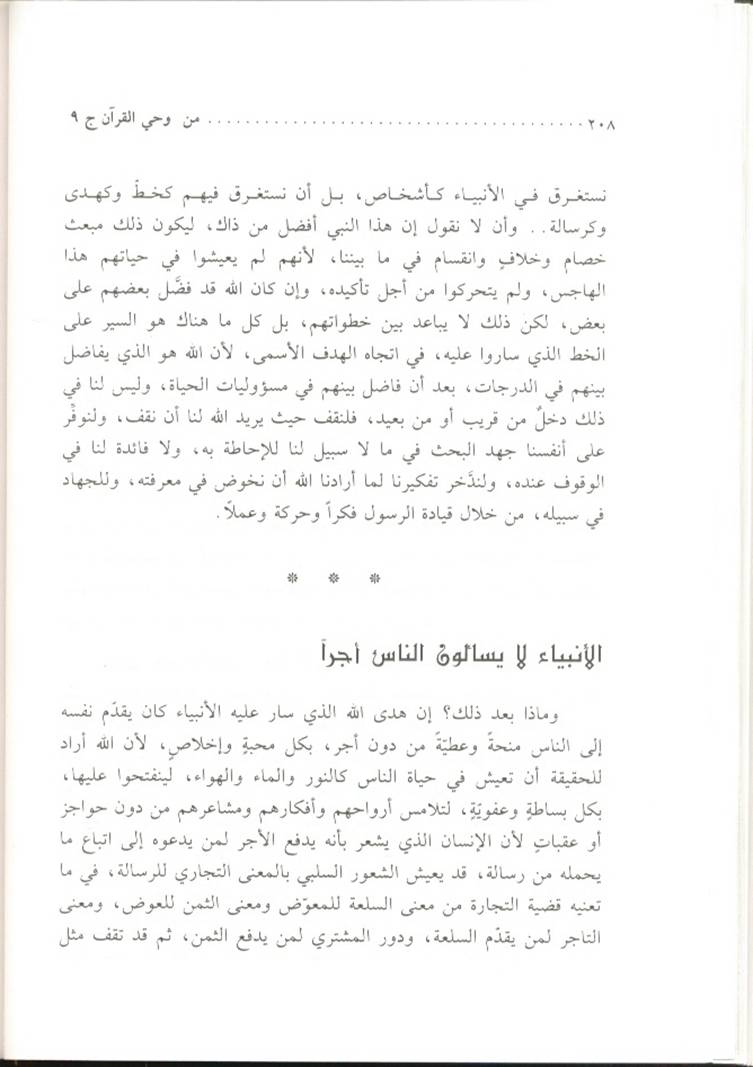 ٢٠٨ ........................................ من وحي القرآن ج ٩
نستغرق في الأنبياء كأشخاص، بل أن نستغرق فيهم كخطّ وكهدى
وكرسالة.. وأن لا نقول إن هذا النبي أفضل من ذاك، ليكون ذلك مبعث
خصام وخلافٍ وانقسام في ما بيننا، لأنهم لم يعيشوا في حياتهم هذا
الهاجس، ولم يتحركوا من أجل تأكيده، وإن كان الله قد فضَّل بعضهم على
بعض، لكن ذلك لا يباعد بين خطواتهم، بل كل ما هناك هو السير على
الخط الذي ساروا عليه، في اتجاه الهدف الأسمى، لأن الله هو الذي يفاضل
بينهم في الدرجات، بعد أن فاضل بينهم في مسؤوليات الحياة، وليس لنا في
ذلك دخلٌ من قريب أو من بعيد، فلنقف حيث يريد الله لنا أن نقف، ولنوفِّر
على أنفسنا جهد البحث في ما لا سبيل لنا للإحاطة به، ولا فائدة لنا في
الوقوف عنده، ولندَّخر تفكيرنا لما أرادنا الله أن نخوض في معرفته، وللجهاد
في سبيله، من خلال قيادة الرسول فكراً وحركة وعملاً.
* * *
الأنبياء لا يسألون الناس أجراً
وماذا بعد ذلك؟ إن هدى الله الذي سار عليه الأنبياء كان يقدّم نفسه
إلى الناس منحةً وعطيّةً من دون أجر، بكل محبةٍ وإخلاصٍ، لأن الله أراد
للحقيقة أن تعيش في حياة الناس كالنور والماء والهواء، لينفتحوا عليها،
بكل بساطةٍ وعفويّةٍ، لتلامس أرواحهم وأفكارهم ومشاعرهم من دون حواجز
أو عقباتٍ لأن الإنسان الذي يشعر بأنه يدفع الأجر لمن يدعوه إلى اتباع ما
يحمله من رسالة، قد يعيش الشعور السلبي بالمعنى التجاري للرسالة، في ما
تعنيه قضية التجارة من معنى السلعة للمعوّض ومعنى الثمن للعوض، ومعنى
التاجر لمن يقدّم السلعة، ودور المشتري لمن يدفع الثمن، ثم قد تقف مثل